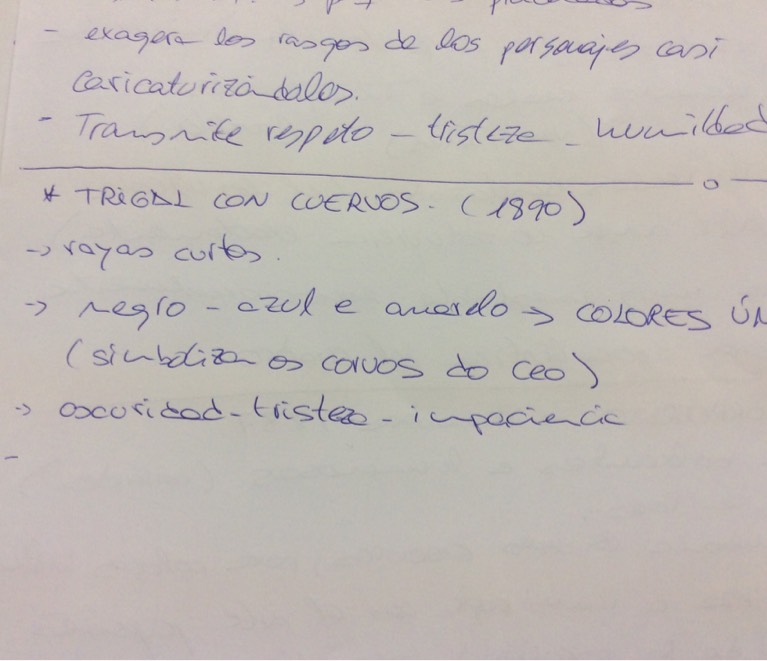 - exagera los rasgos de los personajes casi
caricaturizándolos.
- Transmite respeto - tristeza - humildad
* TRIGAL CON CUERVOS. (1890)
-> rayas cortas.
-> negro - azul e amarelo -> COLORES ÚN
(simbolizan os corvos do ceo)
-> oscuridad - tristeza - impaciencia
-